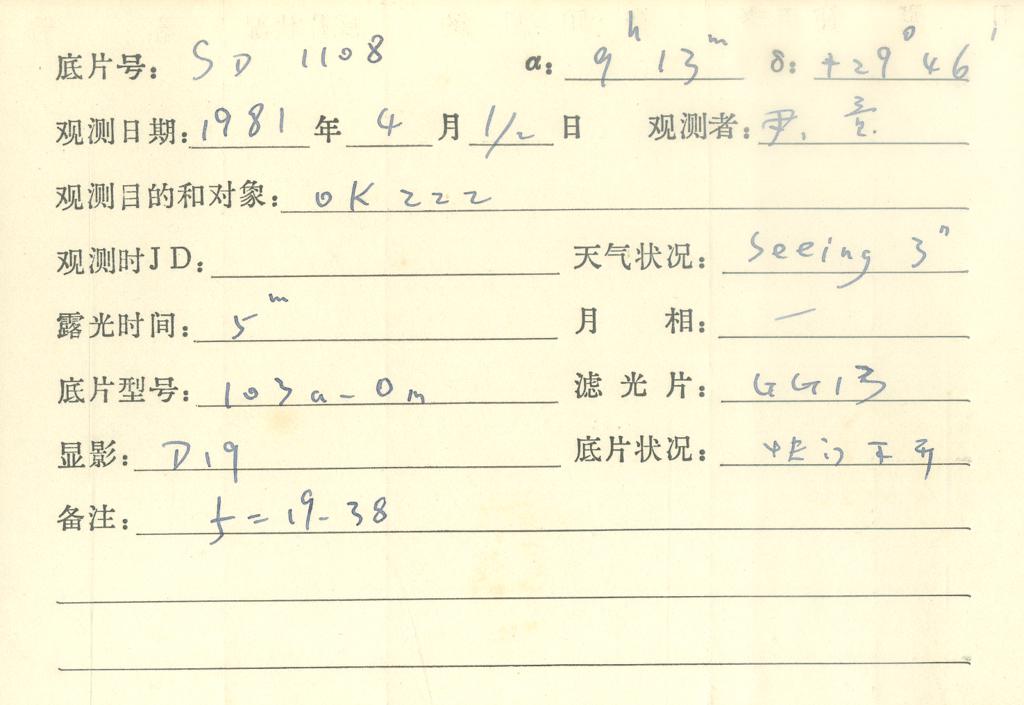 底片号: SD 1108 α: 9h 13m δ: +29° 46′
观测日期: 1981 年 4 月 1/2 日 观测者:
观测目的和对象: OK 222
观测时JD: 天气状况: Seeing 3"
露光时间: 5m 月 相: —
底片型号: 103a-O 滤光片: GG13
显影: D19 底片状况: 快门不
备注: f = 19-38